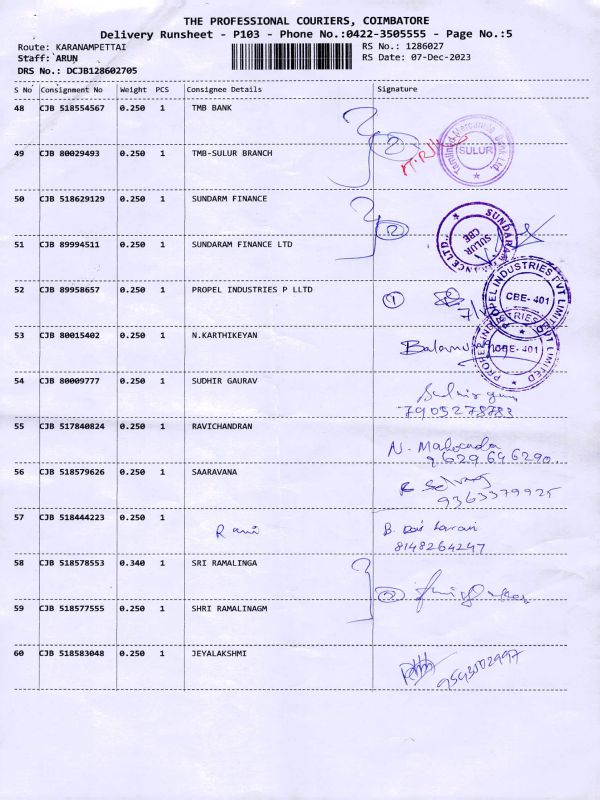 THE PROFESSIONAL COURIERS, COIMBATORE
Delivery Runsheet - P103 - Phone No.:0422-3505555 - Page No.:5
Route: KARANAMPETTAI RS No.: 1286027
Staff: ARUN RS Date: 07-Dec-2023
DRS No.: DCJB128602705
S No Consignment No Weight PCS Consignee Details Signature
48 CJB 518554567 0.250 1 TMB BANK
2
Tamilnad Mercantile Bank Ltd. SULUR
49 CJB 80029493 0.250 1 TMB-SULUR BRANCH
50 CJB 518629129 0.250 1 SUNDARM FINANCE
2
SUNDARAM FINANCE LTD. SULUR CBE
51 CJB 89994511 0.250 1 SUNDARAM FINANCE LTD
52 CJB 89958657 0.250 1 PROPEL INDUSTRIES P LLTD 1
PROPEL INDUSTRIES PVT LIMITED CBE-401
53 CJB 80015402 0.250 1 N.KARTHIKEYAN
54 CJB 80009777 0.250 1 SUDHIR GAURAV
7905278783
55 CJB 517840824 0.250 1 RAVICHANDRAN
9629646290
56 CJB 518579626 0.250 1 SAARAVANA
9363379925
57 CJB 518444223 0.250 1 Rani
8148264247
58 CJB 518578553 0.340 1 SRI RAMALINGA
2
59 CJB 518577555 0.250 1 SHRI RAMALINAGM
60 CJB 518583048 0.250 1 JEYALAKSHMI
9543502997